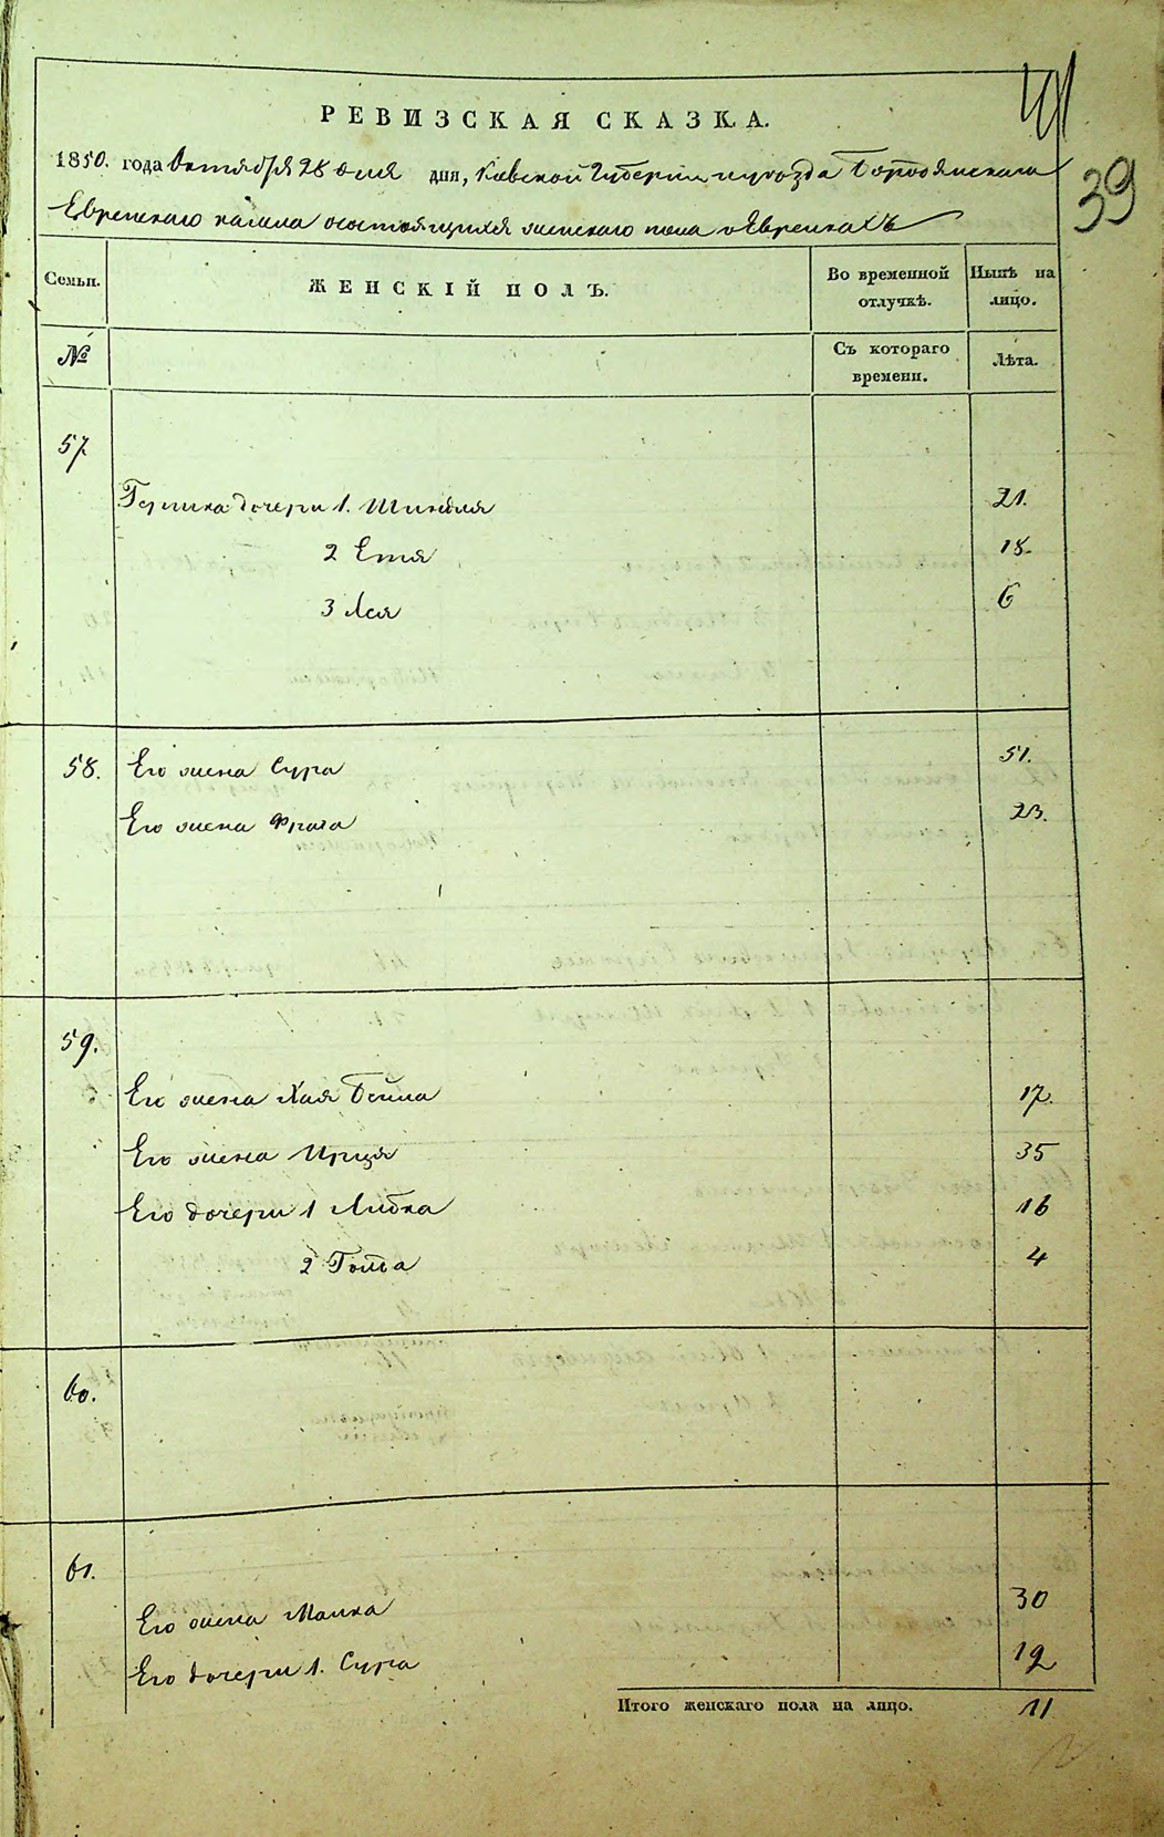 41
39
РЕВИЗСКАЯ СКАЗКА.
1850. года Октября 28 дня дня, Киевской Губернии и уезда Бородянскаго
Еврейскаго кагала о состоящихъ женскаго пола Еврейкахъ
Семьи.
ЖЕНСКІЙ ПОЛЪ.
Во временной отлучкѣ.
Нынѣ на лицо.
№
Съ котораго времени.
Лѣта.
57
Гершка дочери 1. 21.
2 Етя 18.
3 Лея 6
58. Его жена Сура 51.
Его жена 23.
59.
Его жена Хая Бейла 17.
Его жена 35
Его дочери 1 Либка 16
2 4
60.
61.
Его жена Малка 30
Его дочери 1. Сура 12
Итого женскаго пола на лицо. 11